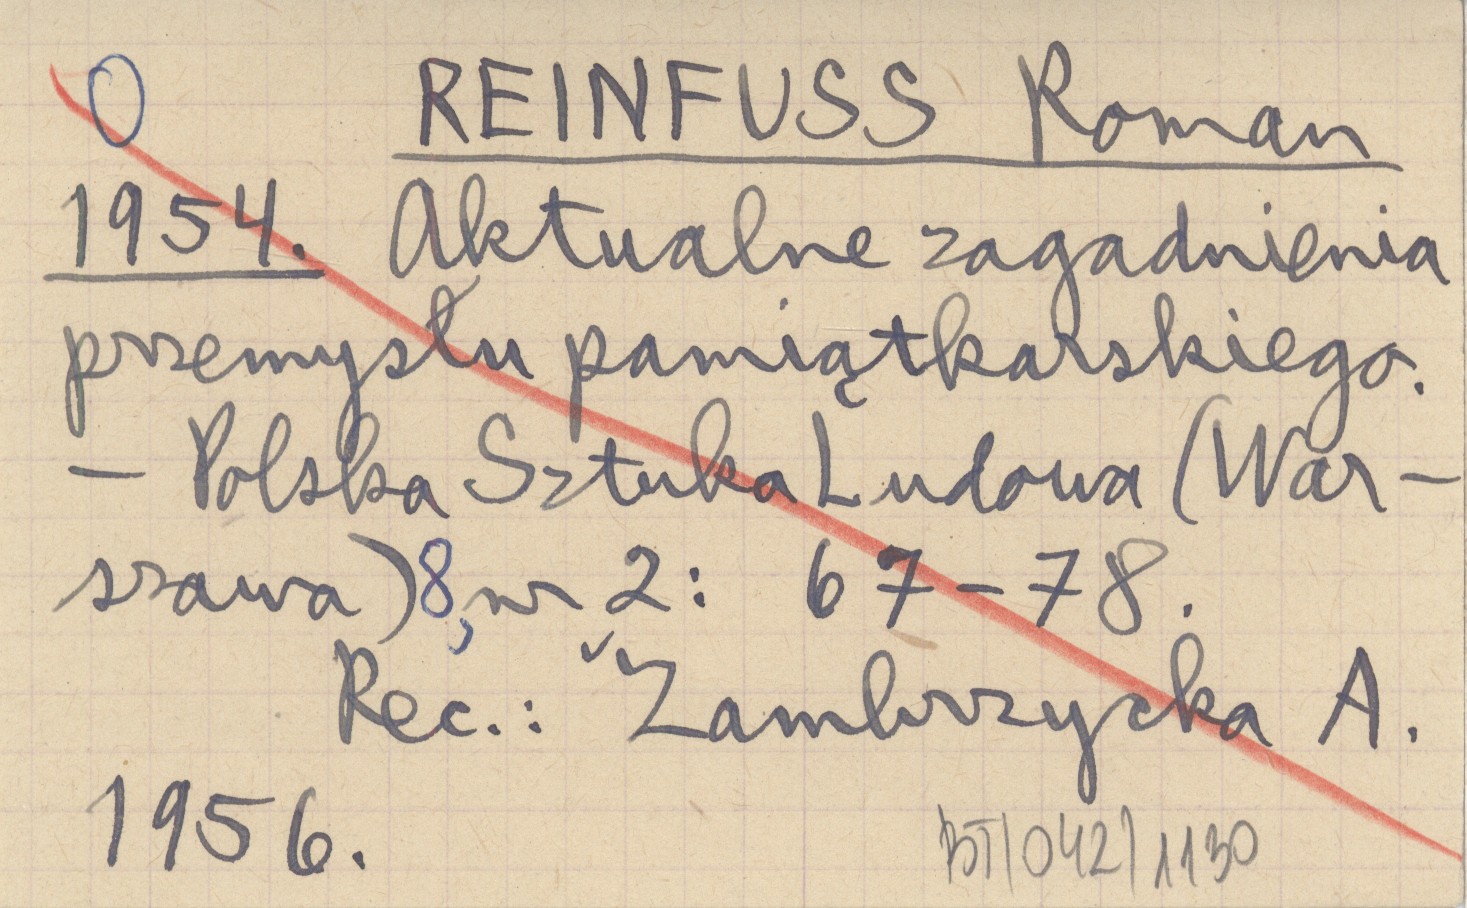 0 REINFUSS Roman
1954. Aktualne zagadnienia
przemysłu pamiątkarskiego.
– Polska Sztuka Ludowa (War-
szawa) 8, nr 2: 67–78.
Rec.: Zambrzycka A.
1956.
BT/042/1130